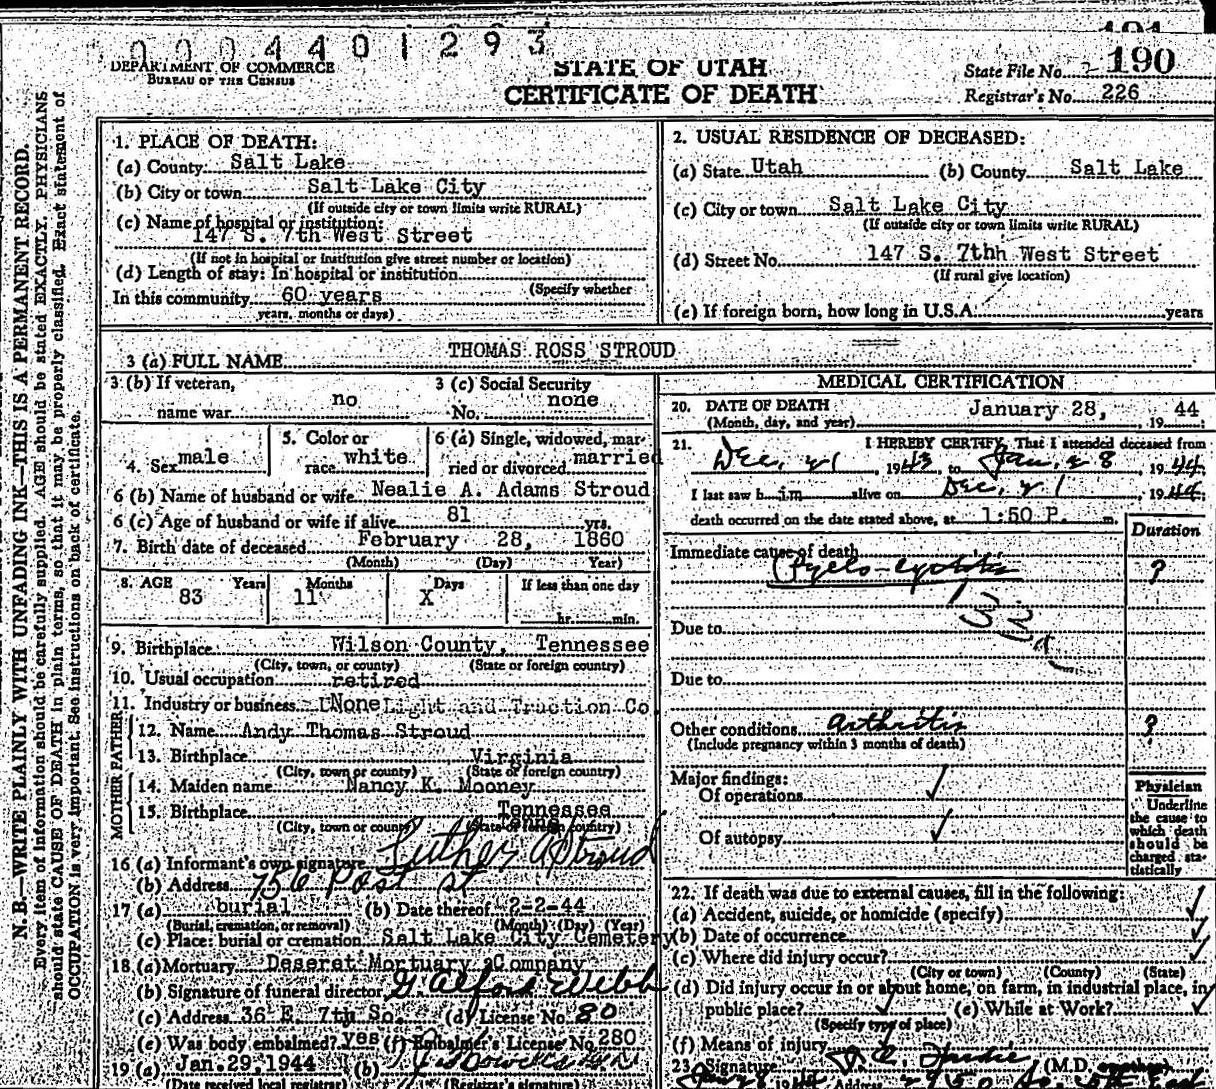 0004401293
DEPARTMENT OF COMMERCE
BUREAU OF THE CENSUS
STATE OF UTAH
CERTIFICATE OF DEATH
State File No. 190
Registrar's No. 226
N. B.—WRITE PLAINLY WITH UNFADING INK—THIS IS A PERMANENT RECORD.
Every item of information should be carefully supplied. AGE should be stated EXACTLY. PHYSICIANS
should state CAUSE OF DEATH in plain terms, so that it may be properly classified. Exact statement of
OCCUPATION is very important. See instructions on back of certificate.
1. PLACE OF DEATH:
(a) County Salt Lake
(b) City or town Salt Lake City
(If outside city or town limits write RURAL)
(c) Name of hospital or institution:
147 S. 7th West Street
(If not in hospital or institution give street number or location)
(d) Length of stay: In hospital or institution
(Specify whether
In this community 60 years
years, months or days)
2. USUAL RESIDENCE OF DECEASED:
(a) State Utah (b) County Salt Lake
(c) City or town Salt Lake City
(If outside city or town limits write RURAL)
(d) Street No. 147 S. 7thh West Street
(If rural give location)
(e) If foreign born, how long in U.S.A. years
3 (a) FULL NAME THOMAS ROSS STROUD
3 (b) If veteran, name war no
3 (c) Social Security No. none
4. Sex male
5. Color or race white
6 (a) Single, widowed, married or divorced married
6 (b) Name of husband or wife Nealie A. Adams Stroud
6 (c) Age of husband or wife if alive 81 yrs.
7. Birth date of deceased February 28, 1860
(Month) (Day) Year)
8. AGE Years Months Days If less than one day
83 11 X hr. min.
9. Birthplace Wilson County, Tennessee
(City, town, or county) (State or foreign country)
10. Usual occupation retired
11. Industry or business None Light and Traction Co
FATHER
12. Name Andy Thomas Stroud
13. Birthplace Virginia
(City, town or county) (State or foreign country)
MOTHER
14. Maiden name Nancy K. Mooney
15. Birthplace Tennessee
(City, town or county) (State or foreign country)
16 (a) Informant's own signature Luther A Stroud
(b) Address 756 Post st
17 (a) burial (b) Date thereof 2-2-44
(Burial, cremation, or removal) (Month) (Day) (Year)
(c) Place: burial or cremation Salt Lake City Cemetery
18 (a) Mortuary Deseret Mortuary Company
(b) Signature of funeral director G. Alford Webb
(c) Address 36 E. 7th So. (d) License No. 80
(e) Was body embalmed? yes (f) Embalmer's License No. 280
19 (a) Jan. 29, 1944 (b)
(Date received local registrar) (Registrar's signature)
MEDICAL CERTIFICATION
20. DATE OF DEATH January 28, 1944
(Month, day, and year)
21. I HEREBY CERTIFY, That I attended deceased from
Dec. 21, 1943 to Jan. 28, 1944
I last saw him alive on Dec. 21, 1944
death occurred on the date stated above, at 1:50 P. m.
Duration
Immediate cause of death
Pyelo-cystitis ?
Due to
Due to
Other conditions arthritis ?
(Include pregnancy within 3 months of death)
Major findings:
Of operations
Of autopsy
Physician
Underline
the cause to
which death
should be
charged sta-
tistically
22. If death was due to external causes, fill in the following:
(a) Accident, suicide, or homicide (specify)
(b) Date of occurrence
(c) Where did injury occur?
(City or town) (County) (State)
(d) Did injury occur in or about home, on farm, in industrial place, in
public place? (e) While at Work?
(Specify type of place)
(f) Means of injury
23. Signature (M.D.
Address